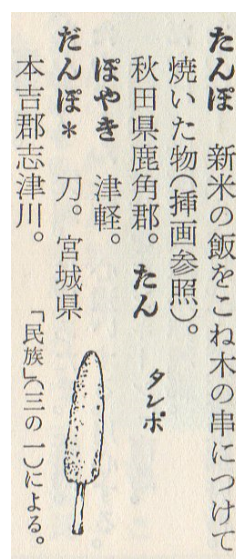 たんぽ 新米の飯をこね木の串につけて
焼いた物(挿画参照)。
秋田県鹿角郡。たん
ぽやき 津軽。
だんぽ* 刀。宮城県
本吉郡志津川。
タンポ
「民族」(三の一)による。